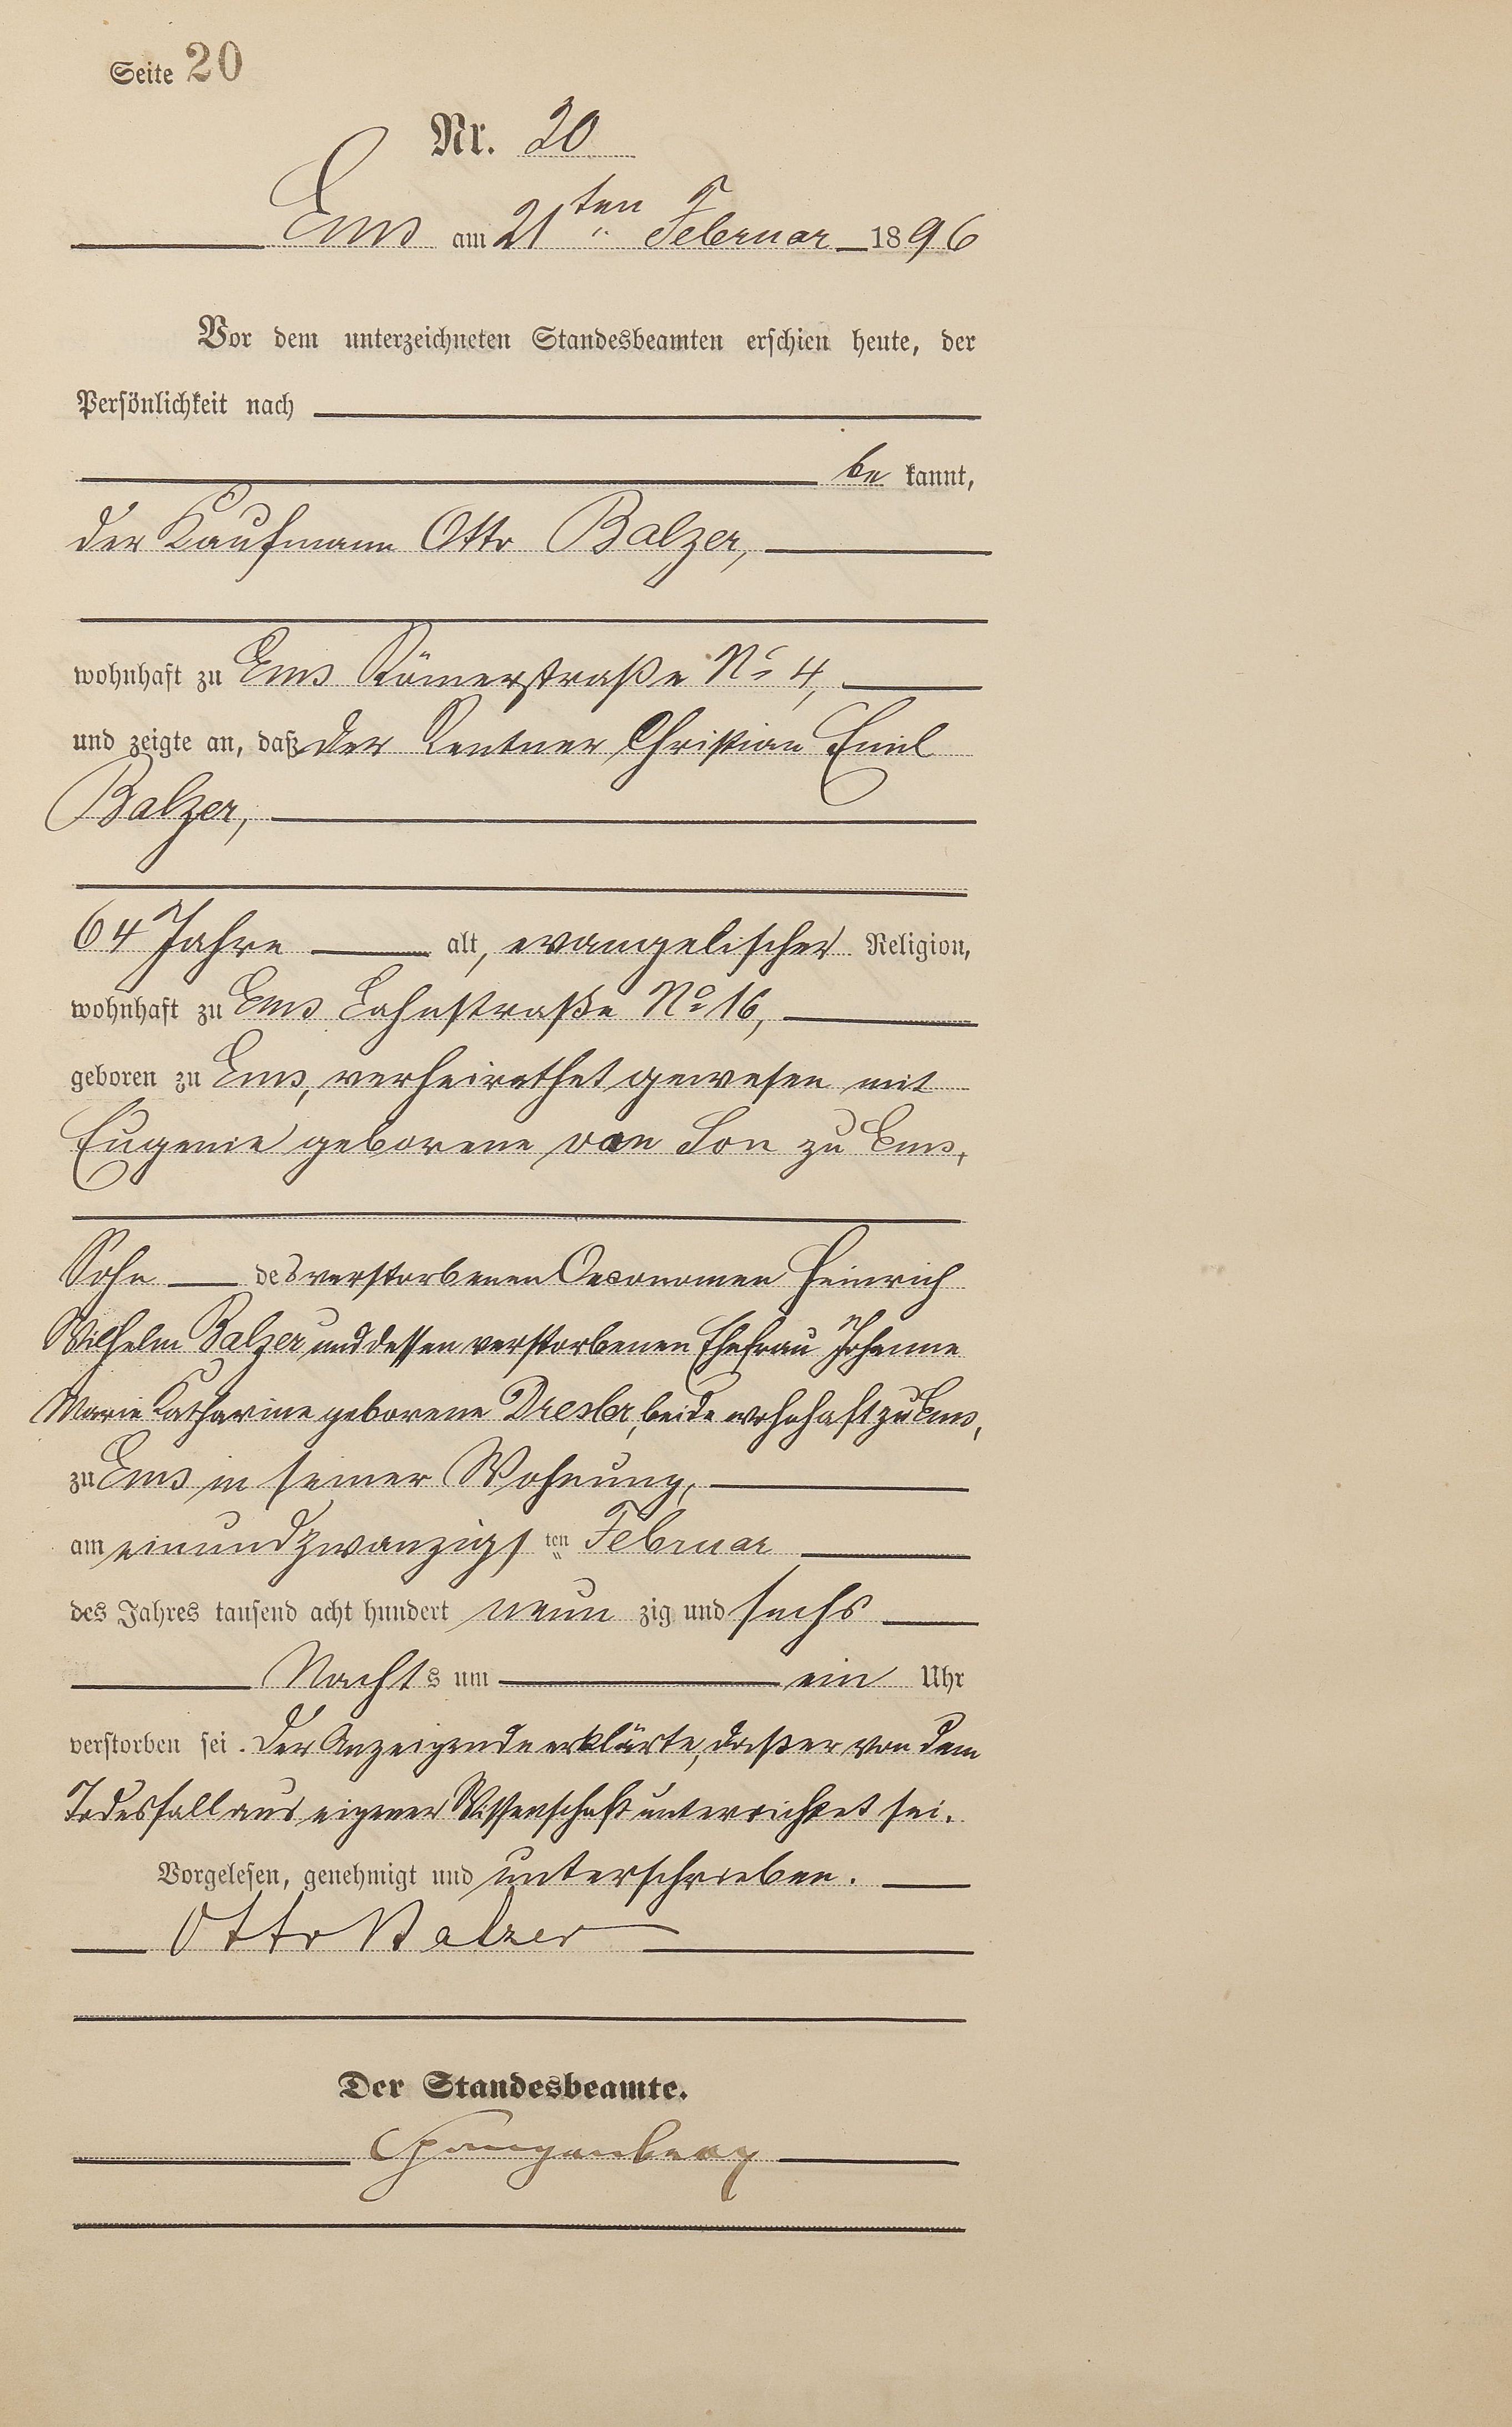 Seite 20
Nr. 20
Ems am 21ten Februar 1896
Vor dem unterzeichneten Standesbeamten erschien heute, der
Persönlichkeit nach
be kannt,
der Kaufmann Otto Balzer,
wohnhaft zu Ems Römerstraße No 4,
und zeigte an, daß der Rentner Christian Emil
Balzer,
64 Jahre alt, evangelischer Religion,
wohnhaft zu Ems Lahnstraße No 16,
geboren zu Ems, verheirathet gewesen mit
Eugenie geborene von Son zu Ems,
Sohn des verstorbenen Oeconomen Heinrich
Wilhelm Balzer und dessen verstorbenen Ehefrau Johanne
Marie Katharine geborene Dresler, beide wohnhaft zu Ems,
zu Ems in seiner Wohnung,
am einundzwanzigs ten Februar
des Jahres tausend acht hundert neun zig und sechs
Nachts um ein Uhr
verstorben sei. Der Anzeigende erklärte, daß er von dem
Todesfall aus eigener Wissenschaft unterrichtet sei.
Vorgelesen, genehmigt und unterschrieben.
Otto Balzer
Der Standesbeamte.